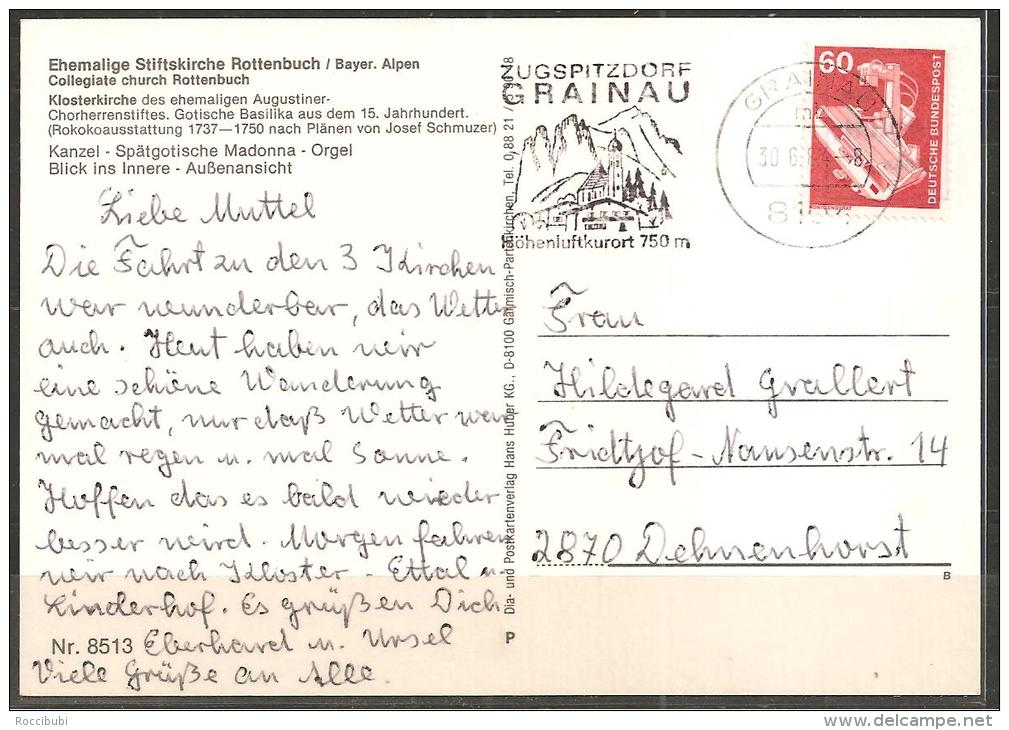 Ehemalige Stiftskirche Rottenbuch / Bayer. Alpen
Collegiate church Rottenbuch
Klosterkirche des ehemaligen Augustiner-
Chorherrenstiftes. Gotische Basilika aus dem 15. Jahrhundert.
(Rokokoausstattung 1737—1750 nach Plänen von Josef Schmuzer)
Kanzel - Spätgotische Madonna - Orgel
Blick ins Innere - Außenansicht
Liebe Muttel
Die Fahrt zu den 3 Kirchen
war wunderbar, das Wetter
auch. Heut haben wir
eine schöne Wanderung
gemacht, nur daß Wetter war
mal regen u. mal Sonne.
Hoffen das es bald wieder
besser wird. Morgen fahren
wir nach Kloster - Ettal u.
Linderhof. Es grüßen Dich
Nr. 8513 Eberhard u. Ursel
Viele Grüße an Alle.
Dia- und Postkartenverlag Hans Huber KG., D-8100 Garmisch-Partenkirchen, Tel. 0 88 21
P
ZUGSPITZDORF
GRAINAU
Höhenluftkurort 750 m
GRAINAU
30.6.84-8
60
DEUTSCHE BUNDESPOST
RÖNTGENGERÄT
Frau
Hildegard Grallert
Fridtjof-Nansenstr. 14
2870 Delmenhorst
B
Roccibubi
www.delcampe.net